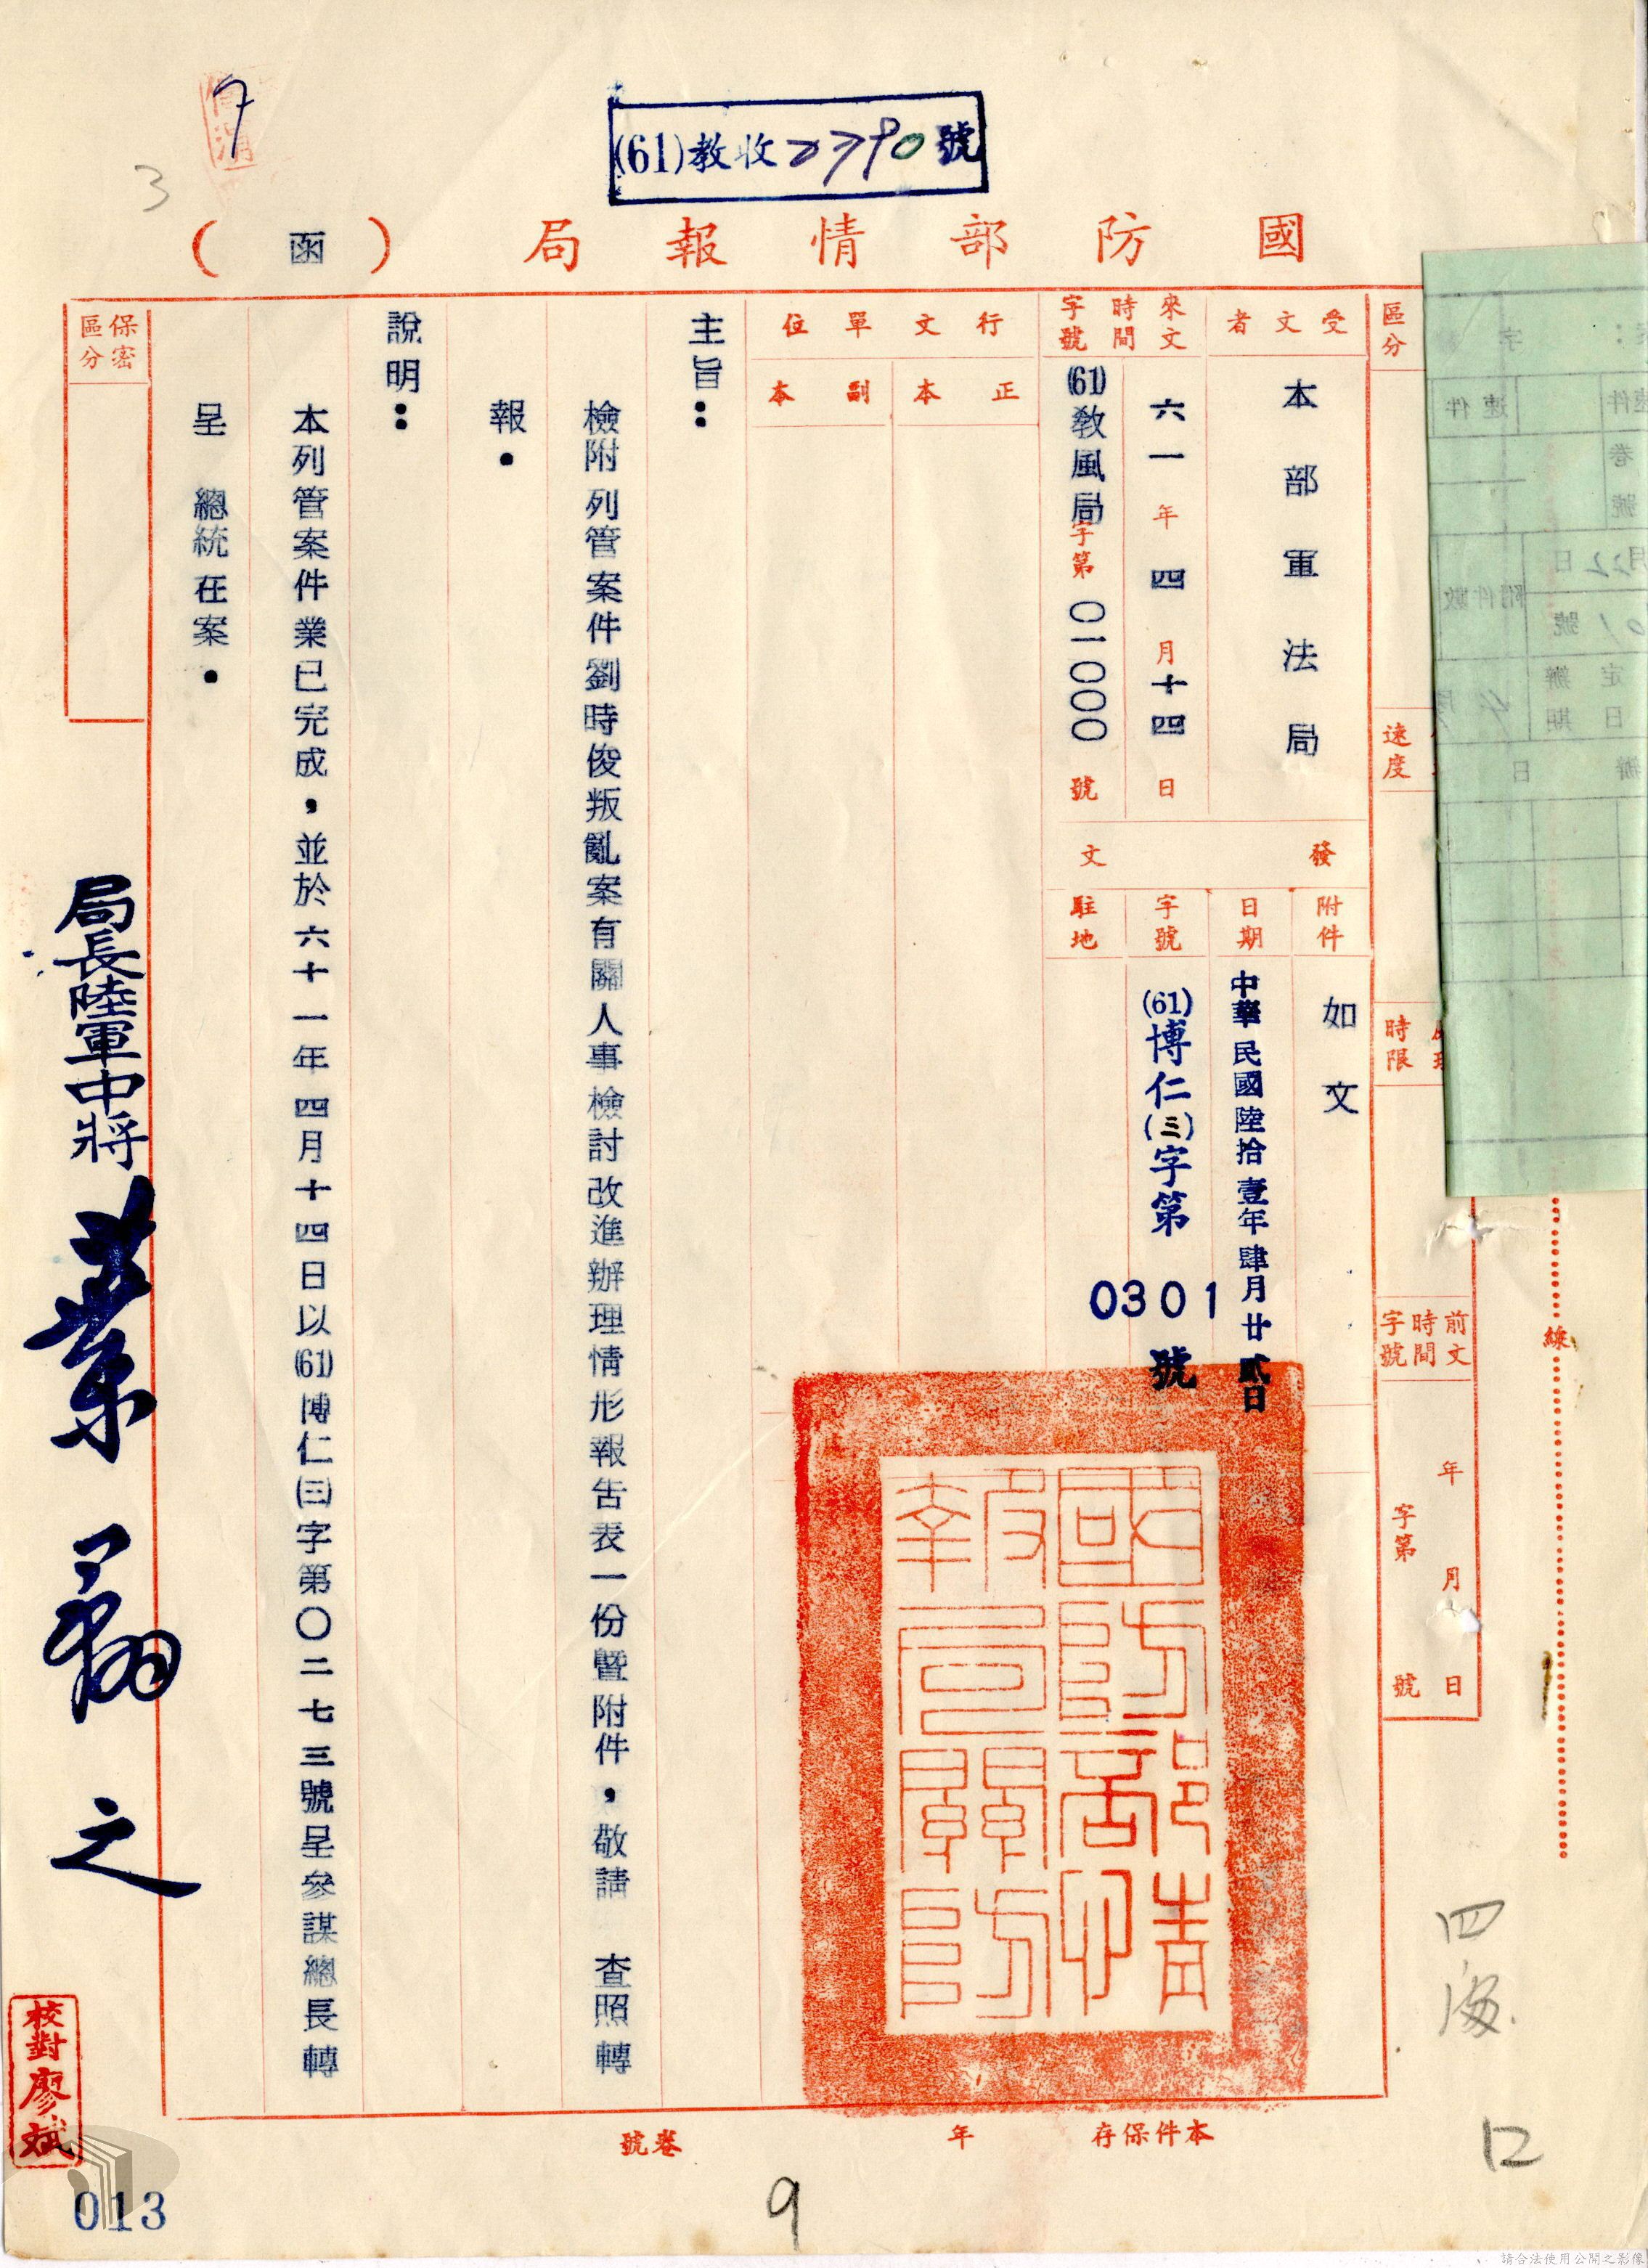 (61)教收 號
國防部情報局（函）
區分
速度
時限
前文時間字號
年 月 日
字第 號
受文者
本部軍法局
來文時間字號
六一年四月十四日
(61)教風局字第〇一〇〇〇號
行文單位
正本
副本
發文
附件
如文
日期
中華民國陸拾壹年肆月廿貳日
字號
(61)博仁(三)字第0301號
駐地
國防部情報局關防
主旨：
檢附列管案件劉時俊叛亂案有關人事檢討改進辦理情形報告表一份暨附件，敬請 查照轉
報．
說明：
本列管案件業已完成，並於六十一年四月十四日以(61)博仁(三)字第〇二七三號呈參謀總長轉
呈 總統在案．
保密區分
局長陸軍中將葉翔之
校對廖斌
線
本件保存 年
卷號
速件
附件數
3
7
9
12
013
請合法使用公開之影像